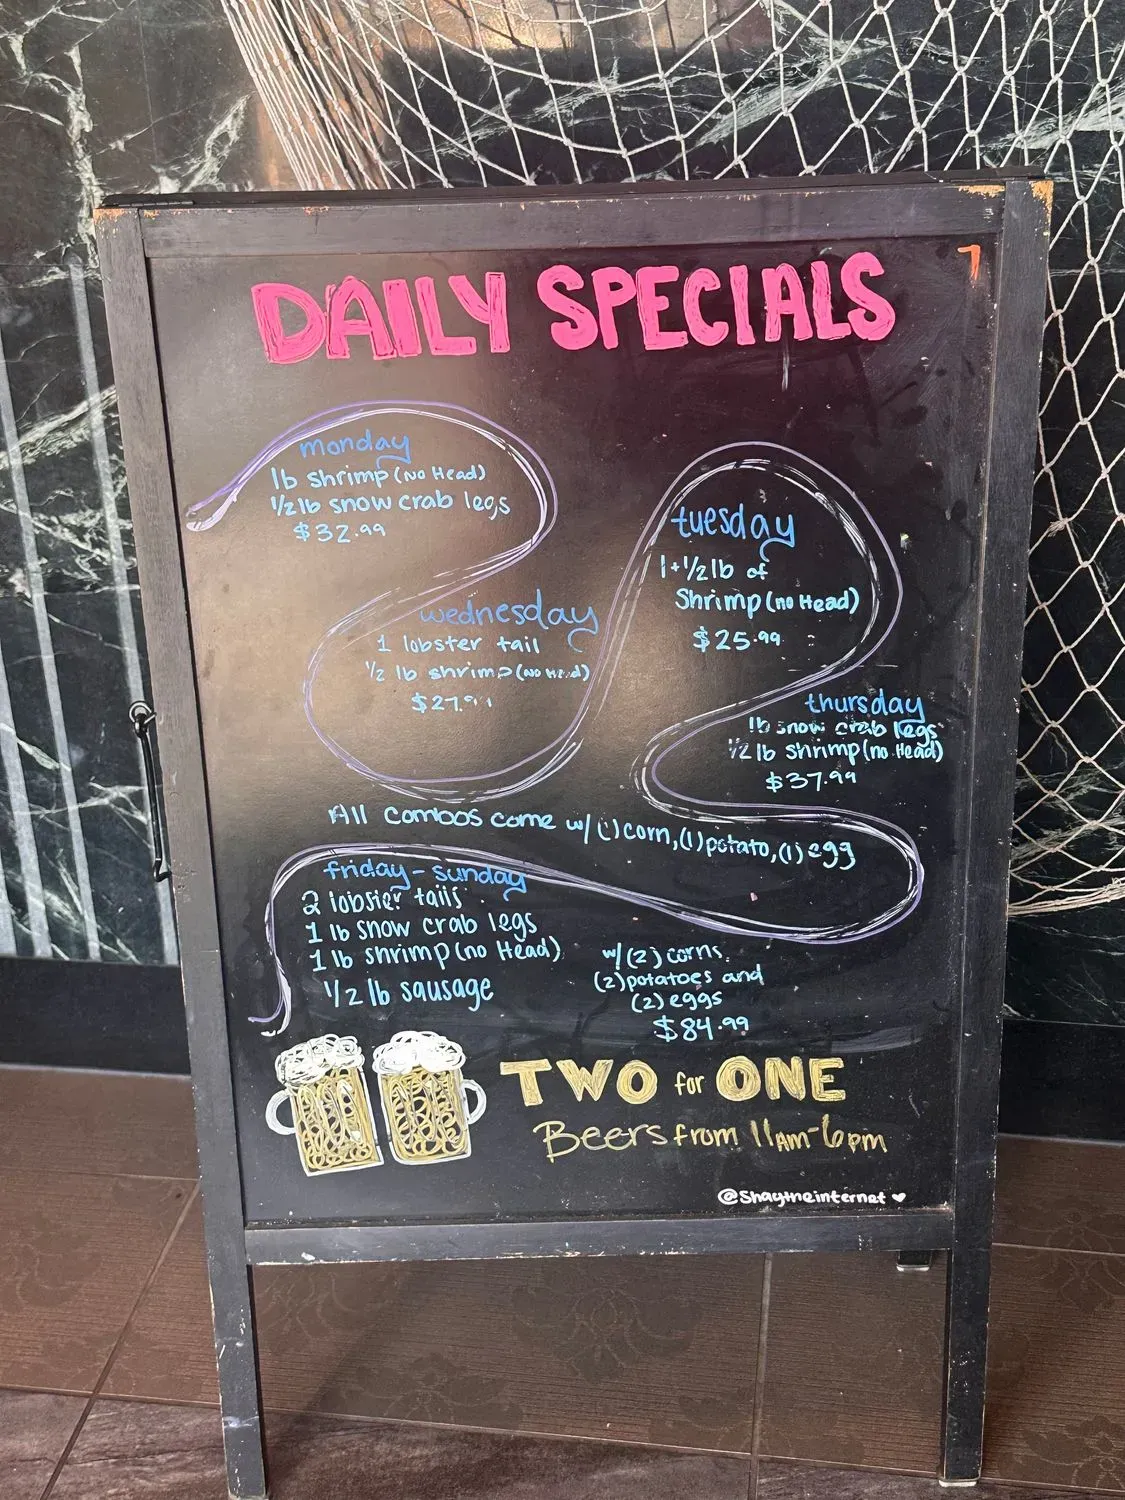 DAILY SPECIALS
monday
1b shrimp (No Head)
1/2 lb snow crab legs
$32.99
tuesday
1+1/2 lb of
Shrimp (no Head)
$25.99
wednesday
1 lobster tail
1/2 lb shrimp (No Head)
thursday
lb snow crab legs
1/2 lb shrimp (no Head)
$37.99
All combos come w/(1) corn, (1) potato, (1) egg
friday - sunday
2 lobster tails
1 lb snow crab legs
1 lb shrimp (no Head)
1/2 lb sausage
w/(2) corns,
(2) potatoes and
(2) eggs
$84.99
TWO for ONE
Beers from 11Am-6pm
@Shaytneinternet